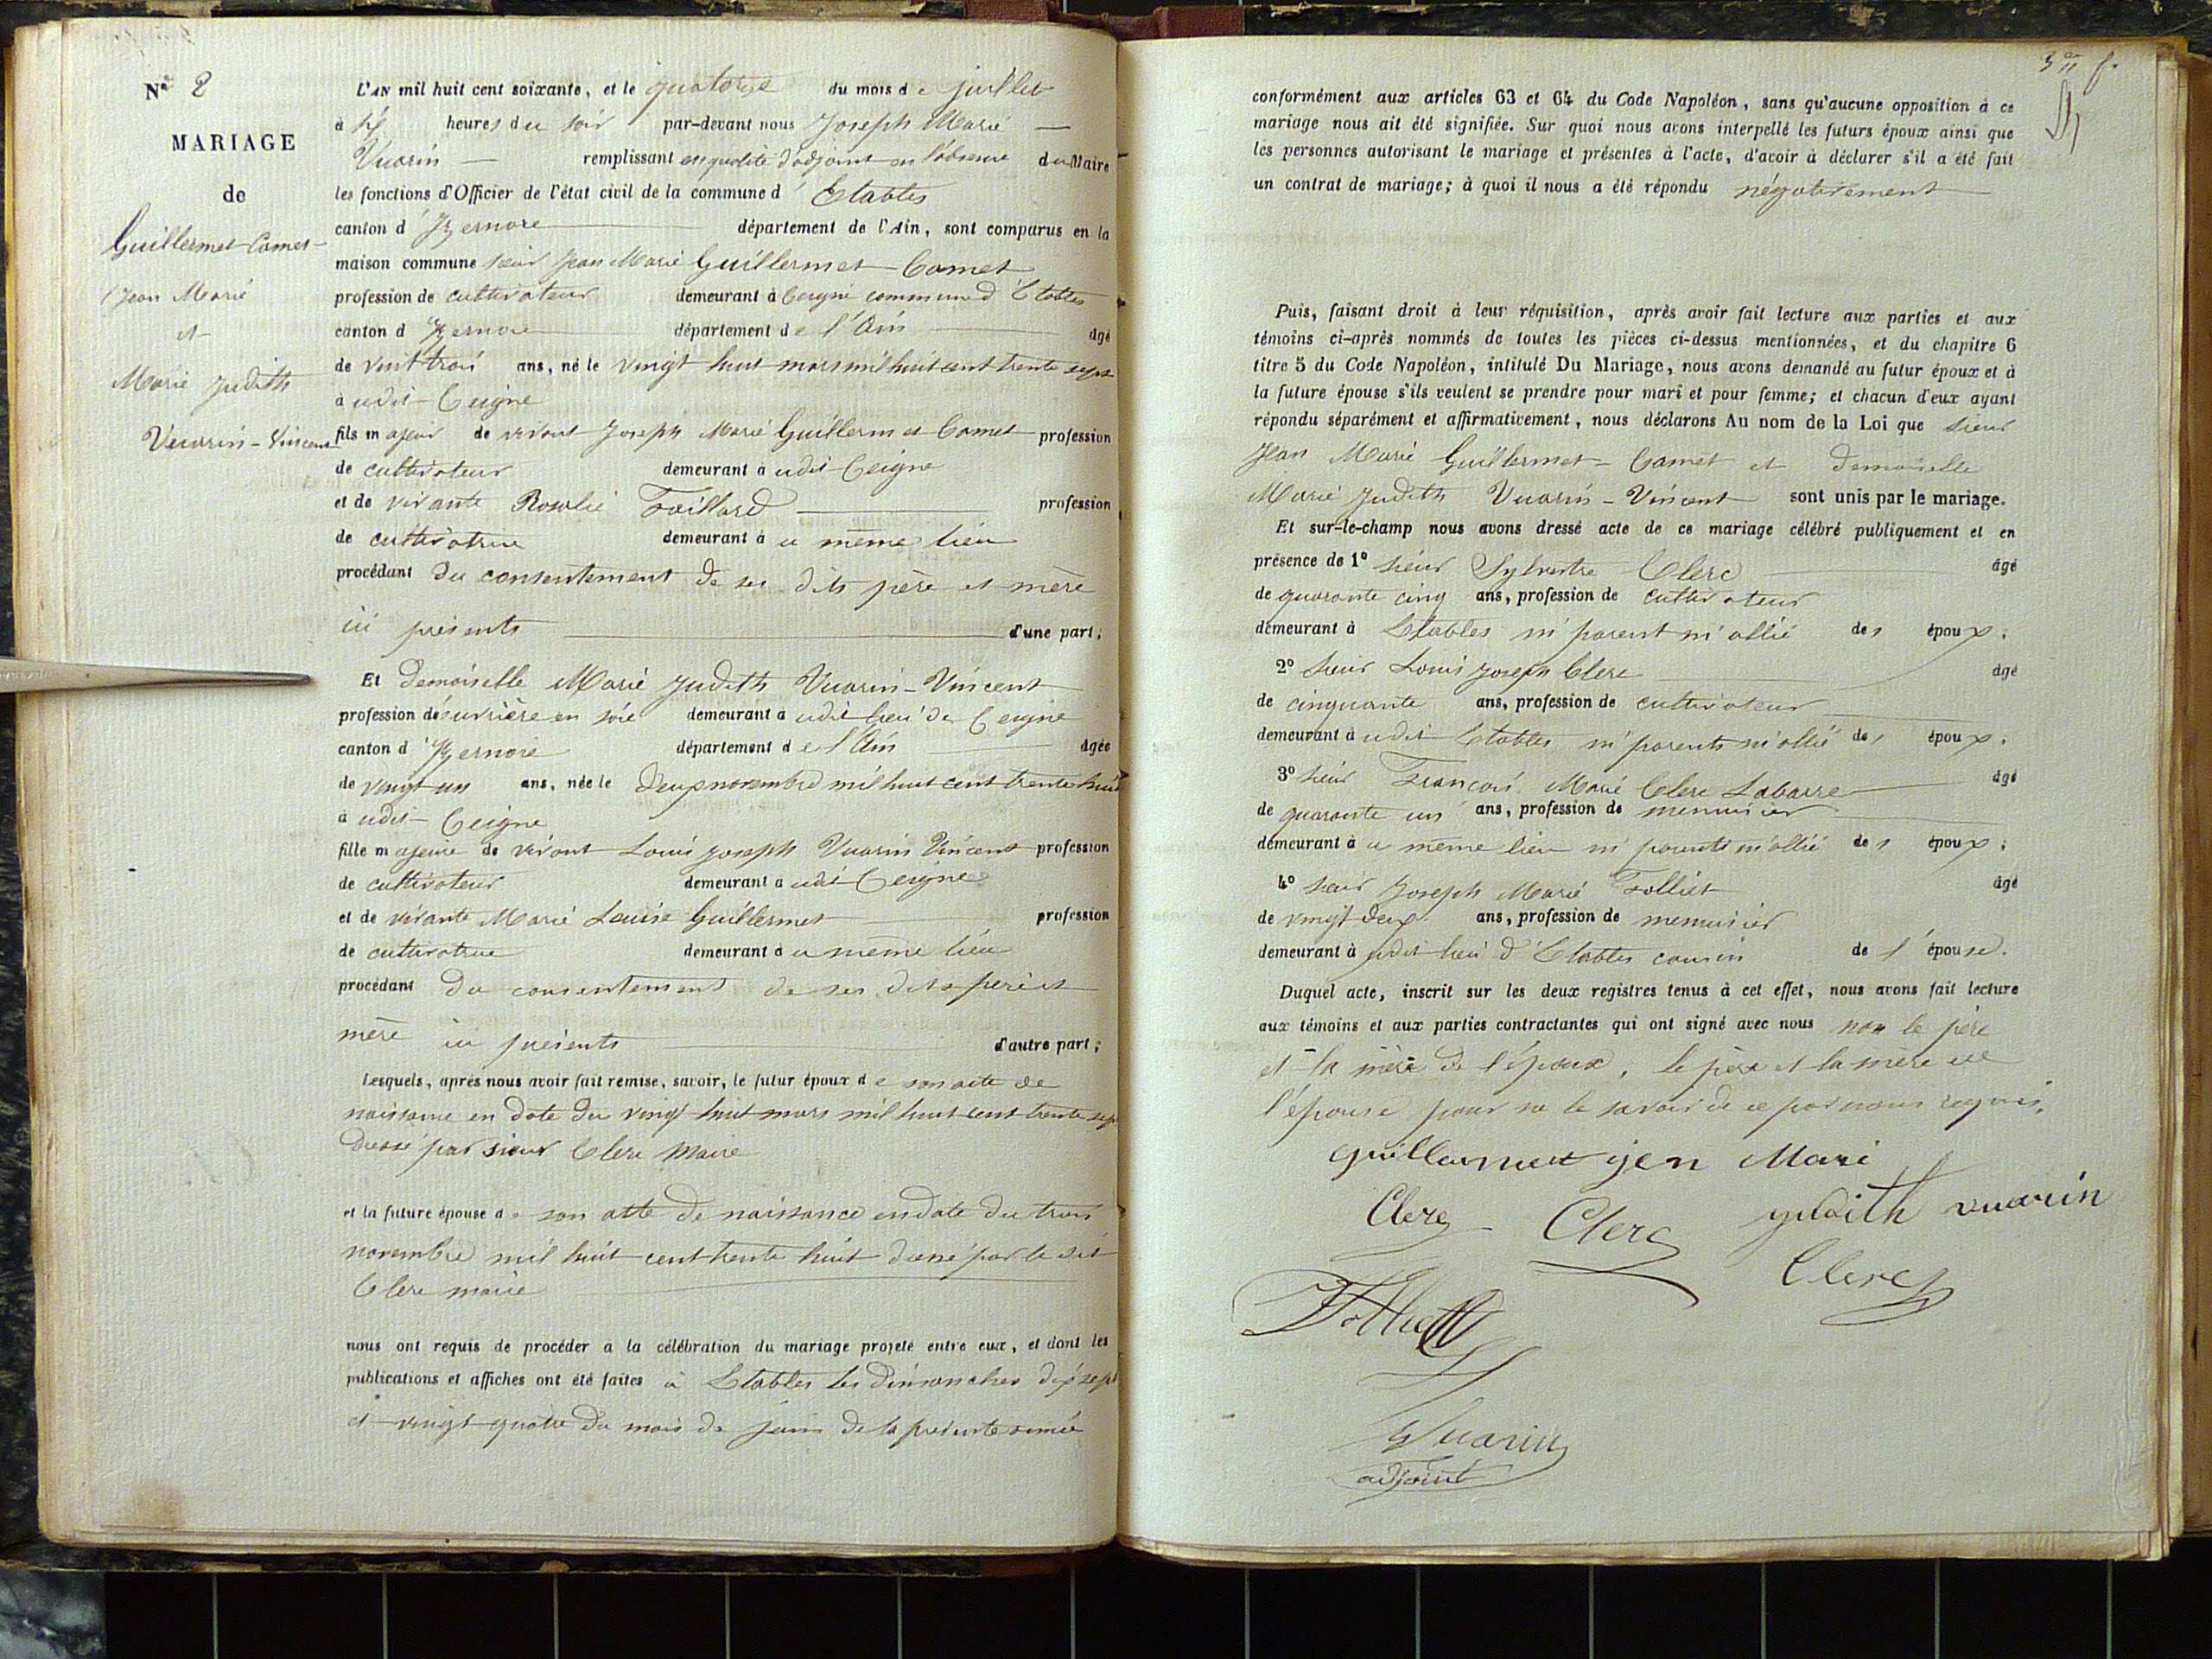 N° 2
MARIAGE
de
Guillermet-Comet
Jean Marie
et
Marie Judith
Vuarin-Vincent
L'AN mil huit cent soixante, et le quatorze du mois de juillet
à six heures du soir par-devant nous Joseph Marie
Vuarin remplissant en qualité d'adjoint en l'absence du Maire
les fonctions d'Officier de l'état civil de la commune d' Etables
canton d' Izernore département de l'Ain, sont comparus en la
maison commune sieur Jean Marie Guillermet-Comet
profession de cultivateur demeurant à Ceigne commune d'Etables
canton d' Izernore département de l'Ain âgé
de vint trois ans, né le vingt huit mars mil huit cent trente sept
à udit Ceigne
fils majeur de vivant Joseph Marie Guillermet Comet profession
de cultivateur demeurant à udit Ceigne
et de vivante Rosalie Taillard profession
de cultivatrice demeurant à u même lieu
procédant du consentement de ses dits père et mère
ici présents d'une part;
Et demoiselle Marie Judith Vuarin-Vincent
profession d'ouvrière en soie demeurant à udit lieu de Ceigne
canton d' Izernore département de l'Ain âgée
de vingt un ans, née le deux novembre mil huit cent trente huit
à udit Ceigne
fille majeure de vivant Louis Joseph Vuarin Vincent profession
de cultivateur demeurant à udit Ceigne
et de vivante Marie Louise Guillermet profession
de cultivatrice demeurant à u même lieu
procédant du consentement de ses dits père et
mère ici présents d'autre part;
Lesquels, après nous avoir fait remise, savoir, le futur époux de son acte de
naissance en date du vingt huit mars mil huit cent trente sept
dressé par sieur Clerc Maire
et la future épouse de son acte de naissance en date du trois
novembre mil huit cent trente huit dressé par le dit
Clerc maire
nous ont requis de procéder à la célébration du mariage projeté entre eux, et dont les
publications et affiches ont été faites à Etables les dimanches dix sept
et vingt quatre du mois de juin de la présente année
conformément aux articles 63 et 64 du Code Napoléon, sans qu'aucune opposition à ce
mariage nous ait été signifiée. Sur quoi nous avons interpellé les futurs époux ainsi que
les personnes autorisant le mariage et présentes à l'acte, d'avoir à déclarer s'il a été fait
un contrat de mariage; à quoi il nous a été répondu négativement
Puis, faisant droit à leur réquisition, après avoir fait lecture aux parties et aux
témoins ci-après nommés de toutes les pièces ci-dessus mentionnées, et du chapitre 6
titre 5 du Code Napoléon, intitulé Du Mariage, nous avons demandé au futur époux et à
la future épouse s'ils veulent se prendre pour mari et pour femme; et chacun d'eux ayant
répondu séparément et affirmativement, nous déclarons Au nom de la Loi que sieur
Jean Marie Guillermet-Comet et demoiselle
Marie Judith Vuarin-Vincent sont unis par le mariage.
Et sur-le-champ nous avons dressé acte de ce mariage célébré publiquement et en
présence de 1° sieur Sylvestre Clerc âgé
de quarante cinq ans, profession de cultivateur
demeurant à Etables ni parent ni allié des époux;
2° sieur Louis Joseph Clerc âgé
de cinquante ans, profession de cultivateur
demeurant à udit Etables ni parents ni allié des époux;
3° sieur François Marie Clerc Labarre âgé
de quarante un ans, profession de menuisier
demeurant à u même lieu ni parents ni allié des époux;
4° sieur Joseph Marie Folliet âgé
de vingt deux ans, profession de menuisier
demeurant à udit lieu d'Etables cousin de l'épouse.
Duquel acte, inscrit sur les deux registres tenus à cet effet, nous avons fait lecture
aux témoins et aux parties contractantes qui ont signé avec nous non le père
et la mère de l'époux, le père et la mère de
l'épouse pour ne le savoir de ce par nous requis.
guillermet jen Marie
Clerc Clerc judith vuarin
Clerc
Folliet
Vuarin
adjoint